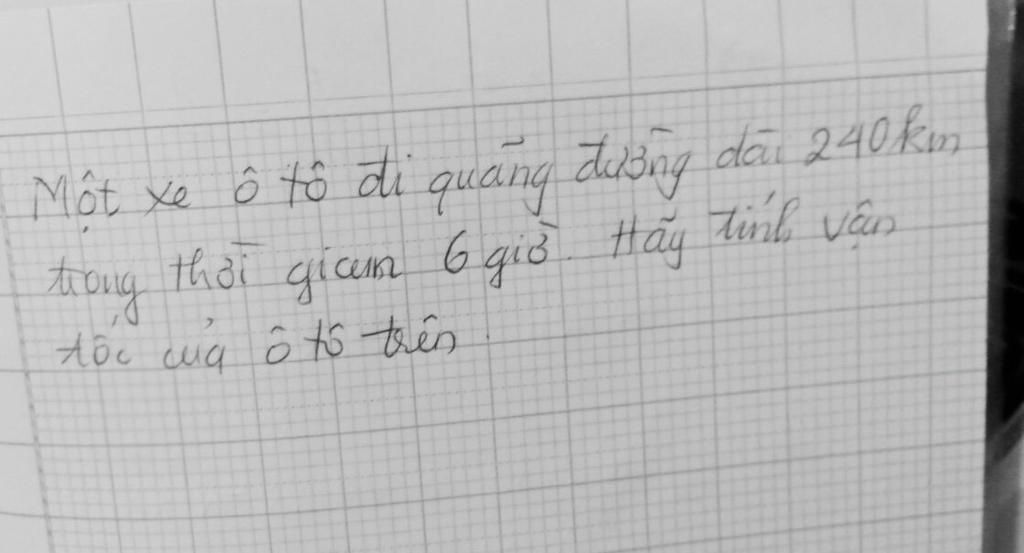 Một xe ô tô đi quãng đường dài 240km
trong thời gian 6 giờ. Hãy tính vận
tốc của ô tô trên.